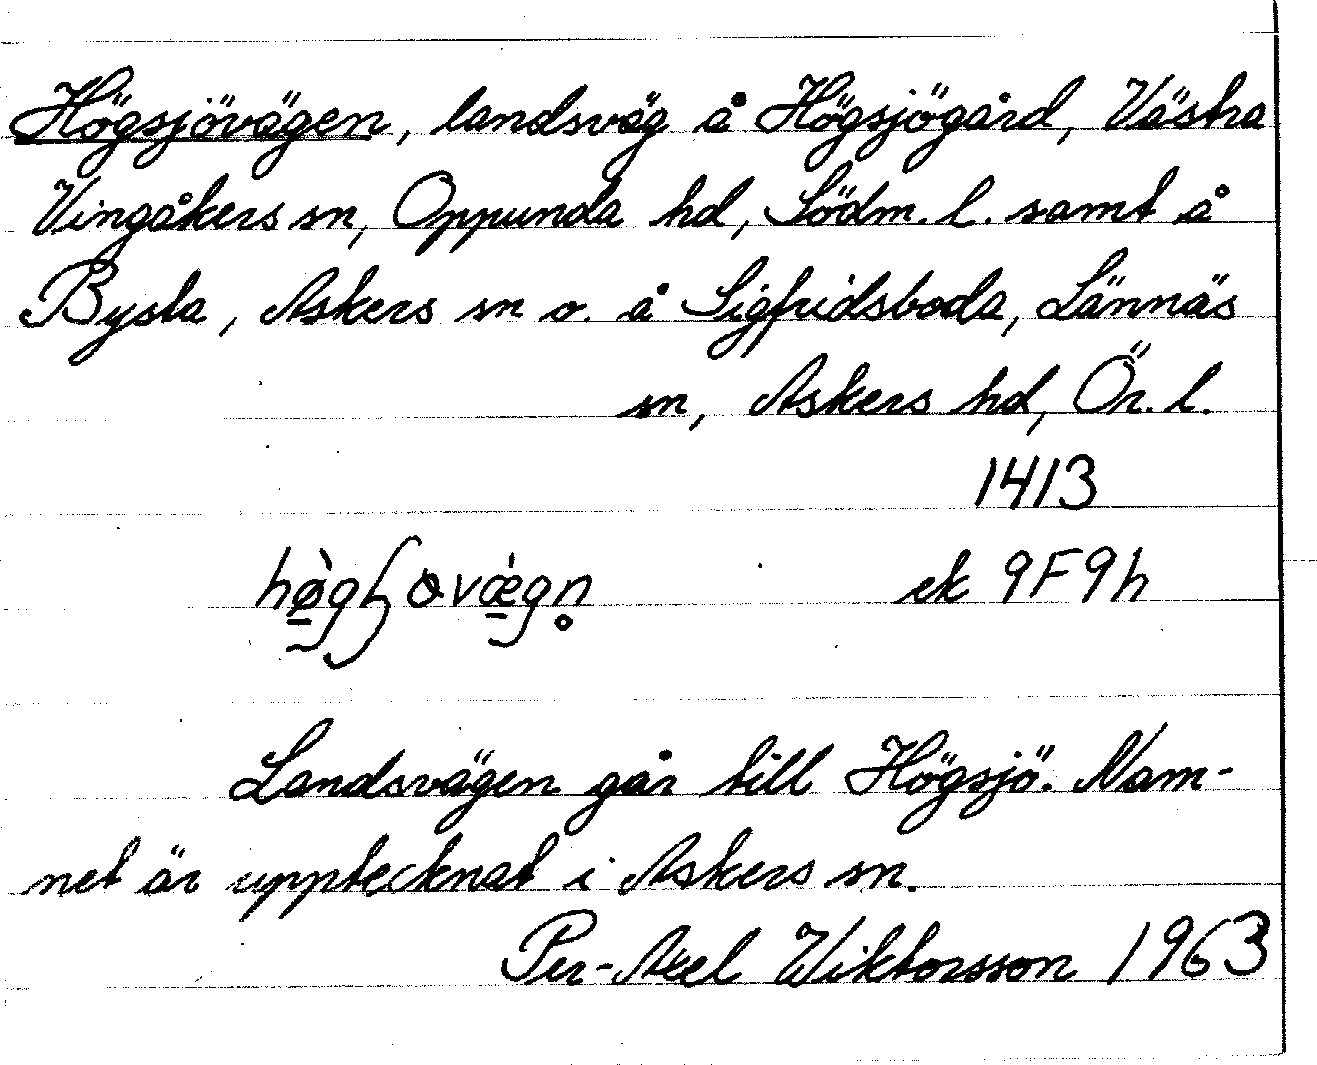 Högsjövägen, landsväg å Högsjögård, Västra
Vingåkers sn, Oppunda hd, Södm. l. samt å
Bysta, Askers sn o. å Sigfridsboda, Lännäs
sn, Askers hd, Ör. l.
1413
ek 9F9h
Landsvägen går till Högsjö. Nam-
net är upptecknat i Askers sn.
Per-Axel Wiktorsson 1963